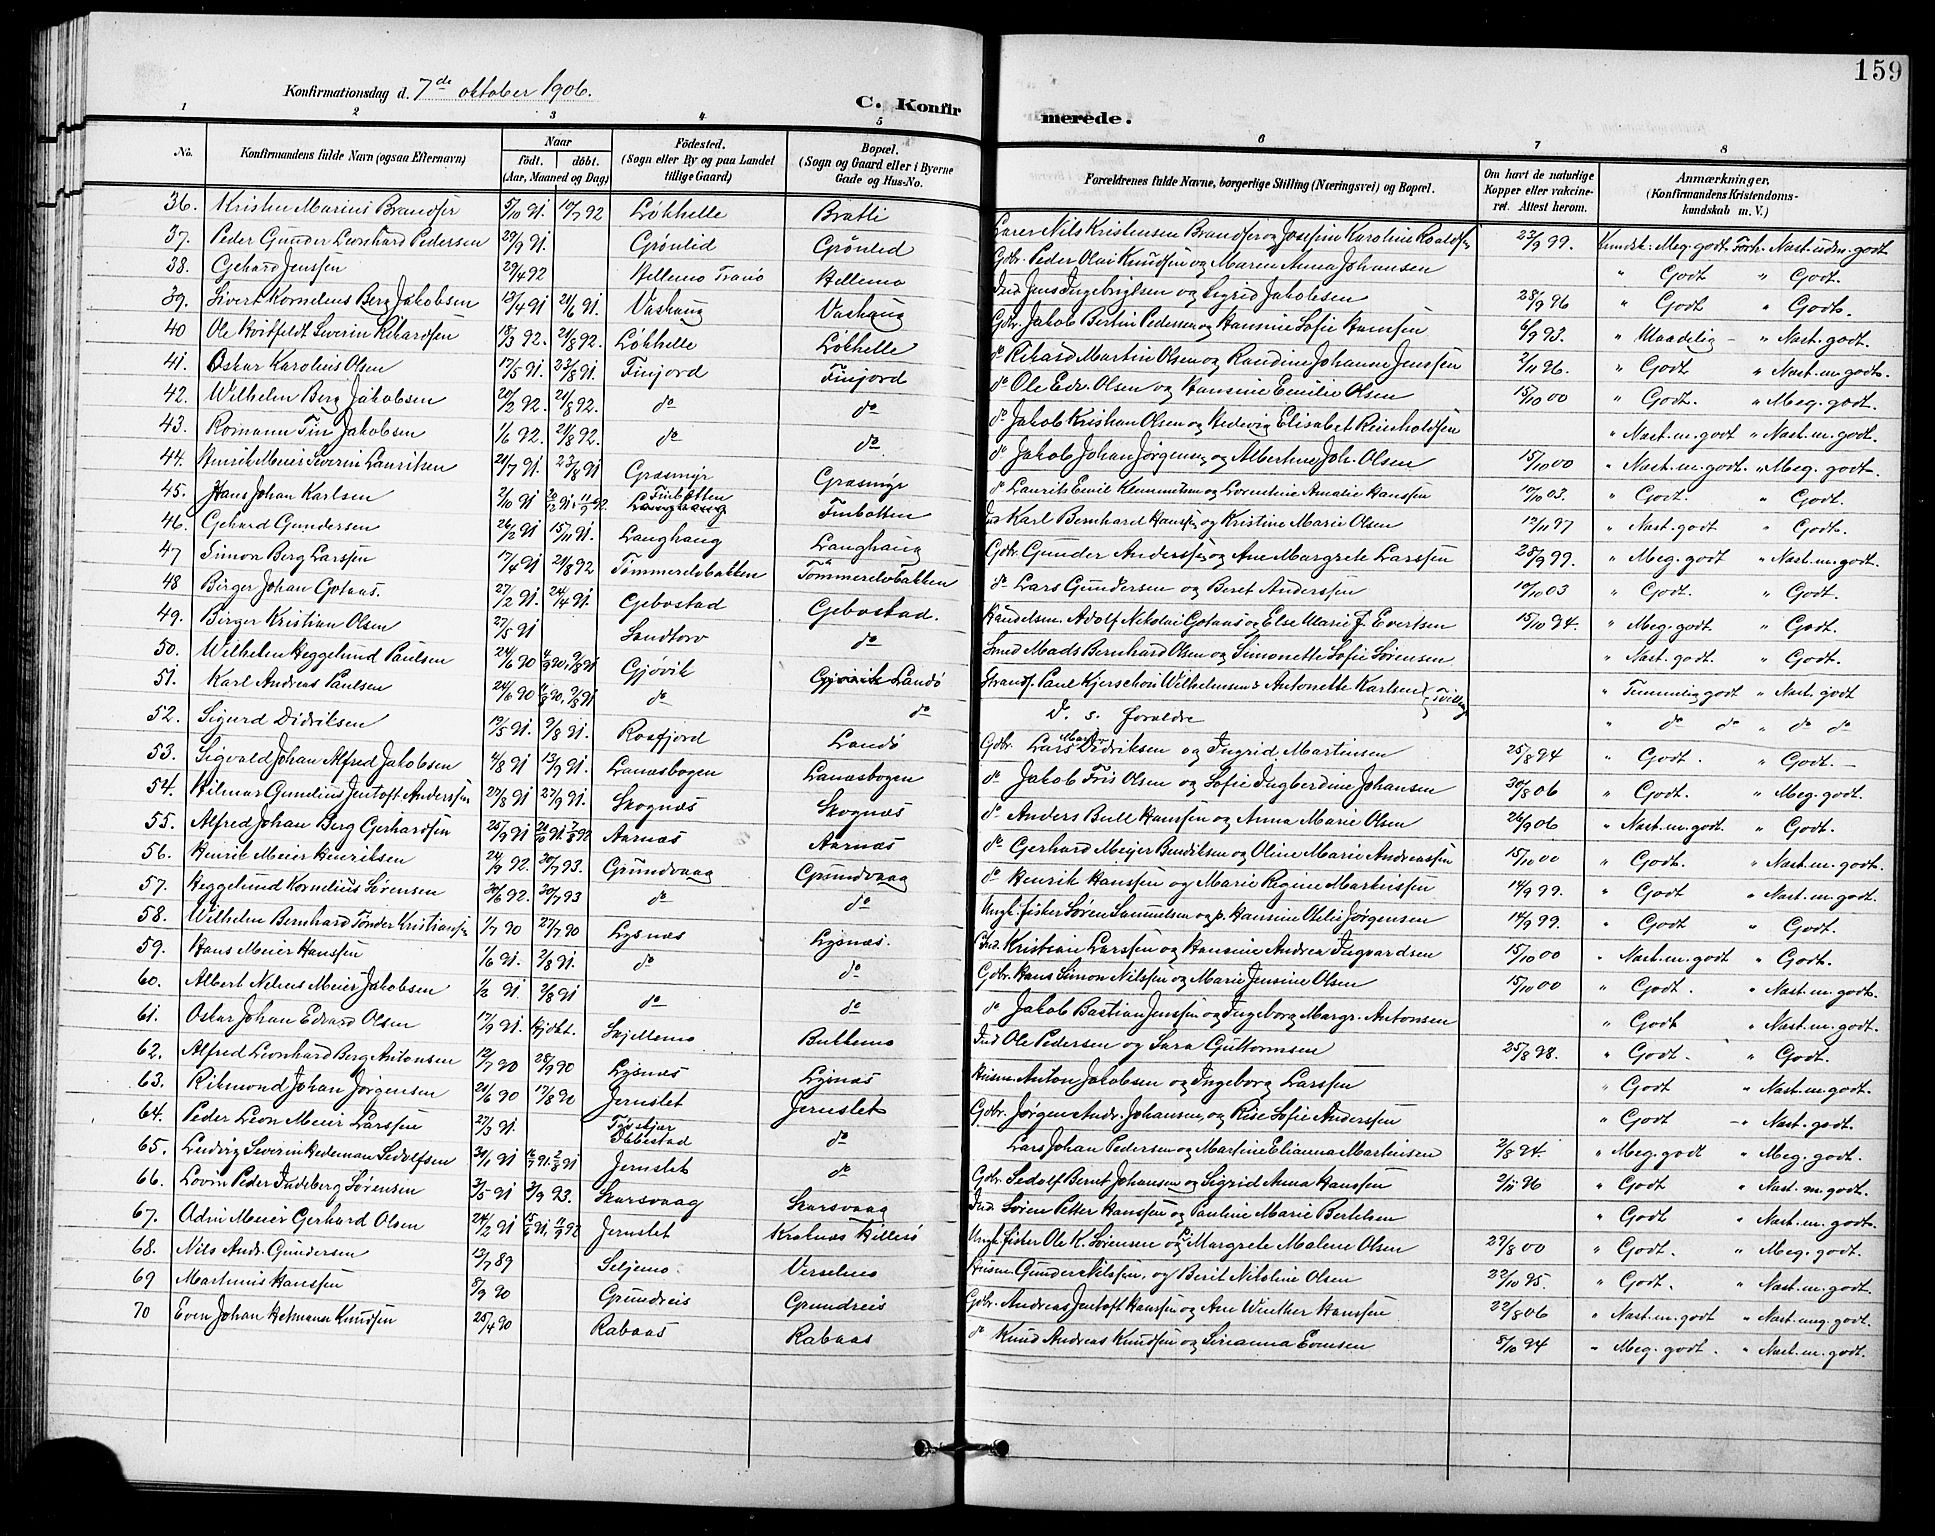 159
Konfirmationsdag d. 7de oktober 1906.
C. Konfirmerede.
1 2 3 4 5 6 7 8
No. Konfirmandens fulde Navn (ogsaa Efternavn) Naar födt. döbt. (Aar, Maaned og Dag) Födested. (Sogn eller By og paa Landet tillige Gaard) Bopæl. (Sogn og Gaard eller i Byerne Gade og Hus-No. Forældrenes fulde Navne, borgerlige Stilling (Næringsvei) og Bopæl. Om havt de naturlige Kopper eller vakcineret. Attest herom. Anmærkninger, (Konfirmandens Kristendomskundskab m. V.)
36. Kristen Marius Brandser 5/10 91. 10/7 92 Løkhelle Bratli Lærer Nils Kristensen Brandser og Josefine Karoline Roaldsen 23/9 99. Kundsk. Meg. godt. Forh. Nast. udm. godt
37. Peder Gunder Leonhard Pedersen 29/9 91. Grönlid Grönlid Gdbr. Peder Olai Knudsen og Maren Anna Johansen " Godt " Godt.
38. Gehard Jenssen 29/4 92 Hellemo Tranö Hellemo Ind Jens Ingebrigtsen og Sigrid Jakobsen 28/9 96 " Godt " Godt.
39. Sivert Kornelius Berg Jakobsen 13/4 91 21/6 91. Vashaug Vashaug Gdbr. Jakob Bertin Pedersen og Hansine Sofie Hansen 6/9 93. " Maadelig - " Nast. godt.
40 Ole Hvitfeldt Severin Rikardsen 18/3 92. 21/8 92. Løkhelle Løkhelle do Rikard Martin Olsen og Randine Johanne Jenssen 2/11 96. " Godt " Nast. m. godt.
41. Oskar Karolius Olsen 17/5 91. 23/8 91. Finjord Finjord do Ole Edv. Olsen og Hansine Emilie Olsen 15/10 00 " Godt. " Meg. godt.
42. Wilhelm Berg Jakobsen 20/2 92. 21/8 92. do do do Jakob Kristian Olsen og Hedevig Elisabet Reinholdsen " Nast. m. godt " Nast. m. godt.
43. Romann Fin Jakobsen 1/6 92. 21/8 92. do do do Jakob Johan Jørgensen og Albertine Joh. Olsen 15/10 00 " Nast. m. godt. " Meg. godt.
44. Henrik Meier Severin Lauritsen 21/7 91. 23/8 91 Grasmyr Grasmyr do Laurits Emil Klemmetsen og Lorentine Amalie Hanssen 10/10 03. " Godt. " Godt.
45. Hans Johan Karlsen 2/10 91 Finbotten Langhaug Finbotten Ind Karl Bernhard Hanssen og Kristine Marie Olsen 12/11 97 " Nast. godt " Godt.
46. Gehard Gundersen 26/2 91. 15/11 91. Langhaug Langhaug Gdbr. Gunder Anderssen og Ane Margrete Larssen 28/9 99. " Meg. godt " Nast. m. godt.
47 Simon Berg Larssen 17/4 91 21/8 92 Tømmerelvbakken Tømmerelvbakken do Lars Gundersen og Beret Anderssen 10/10 03 " Godt " Godt.
48 Birger Johan Gotaas. 27/2 91. 24/4 91. Gebostad Gebostad. Handelsm. Adolf Nikolai Gotaas og Else Marie J. Evertsen 15/10 94. " Meg. godt. " Godt.
49. Birger Kristian Olsen 27/5 91 Sandtorv do Smed Mads Bernhard Olsen og Simonette Sofie Sørensen " Nast. godt. " Godt.
50. Wilhelm Heggelund Paulsen 24/6 90 Gjövik Gjövik Landö Strands. Paul Kjerschou Wilhelmsen & Antonette Karlsen (Tvilling " Temmelig godt " Nast. godt
51. Karl Andreas Paulsen 24/6 90 do do D. s. foraldre " do do " do do
52. Sigurd Didrilsen 19/5 91. 9/8 91. Rosfjord Landö Gdbr. Lars Martin Didriksen og Ingrid Martinsen 25/8 94 " Godt. " Godt. -
53. Sigvald Johan Alfred Jakobsen 4/8 91 13/9 91. Lanæsbogen Lanæsbogen do Jakob Friis Olsen og Sofie Ingberdine Johansen 30/8 06 " Godt. " Meg. godt.
54. Hilmar Gunelius Jentoft Anderssen 27/8 91 27/9 91. Skognæs Skognæs do Anders Bull Hanssen og Anna Marie Olsen 26/9 06 " Nast. m. godt. " Godt.
55. Alfred Johan Berg Gerhardsen 25/9 91 Aarnæs Aarnæs do Gerhard Meijer Bendiksen og Oline Marie Andreassen 15/10 00 " Godt. " Nast. m. godt.
56. Henrik Meier Henriksen 24/9 92. 30/7 93. Grundvaag Grundvaag do Henrik Hanssen og Marie Regine Martinsen 14/9 99. " Godt " Nast. m. godt.
57. Heggelund Kornelius Sørensen 30/6 92. 30/7 93 do do Ungk. fisker Søren Samuelsen og p. Hansine Otelie Jørgensen 14/9 99. " Godt " Godt.
58. Wilhelm Bernhard Tønder Kristiansen 1/7 90 27/7 90 Lysnæs Lysnæs. Ind. Kristian Larssen og Hansine Andrea Ingvardsen 15/10 00 " Nast. m. godt " Godt.
59. Hans Meier Hanssen 1/6 91. 2/8 91. do do Gdbr. Hans Simon Nilssen og Marie Jensine Olsen 15/10 00 " Godt. " Nast. m. godt.
60. Albert Nelius Meier Jakobsen 1/2 91. 2/8 91 do do do Jakob Bastian Jenssen og Ingeborg Margr. Antonsen " Godt " Nast. m. godt.
61. Oskar Johan Edvard Olsen 17/9 91. Hjdbt. Skjellemo Bukkemo Ind Ole Pedersen og Sara Guttormsen 25/8 98. " Godt. " Godt.
62. Alfred Leonhard Berg Antonsen 12/7 90 28/9 90 Lysnæs Lysnæs Husm. Anton Jakobsen og Ingeborg Larssen " Godt " Nast. m. godt.
63. Rikmond Johan Jørgensen 21/6 90 17/8 90 Jernslet Jernslet Gdbr. Jørgen Andr. Johansen, og Rise Sofie Anderssen " Godt - " Nast. godt.
64. Peder Leon Meier Larssen 27/3 91. Ibbestad do Lars Johan Pedersen og Martine Elianna Martinsen 2/8 94. " Meg. godt " Meg. godt.
65. Ludvig Severin Hedeman Sedolfsen 30/1 91 Jernslet do Gdbr. Sedolf Bernt Johansen og Sigrid Anna Hanssen 2/11 96 " Godt " Nast. m. godt.
66. Lovin Peder Indeberg Sørensen 31/5 91 3/9 93. Skarsvaag Skarsvaag Ind. Søren Petter Hanssen og Pauline Marie Bertelsen " Godt " Nast. m. godt.
67. Odin Meier Gerhard Olsen 24/2 91 Jernslet Kralnæs Hillesö Ungk. fisker Ole K. Sørensen og p Margrete Malene Olsen 29/8 00 " Godt. " Meg. godt.
68. Nils Andr. Gundersen 13/7 89 Seljemo. Verselmo Husm Gunder Nilssen, og Berit Nikoline Olsen 22/10 95. " Godt. " Nast. m. godt.
69 Martinus Hanssen 5/9 90 Grundreis Grundreis Gdbr. Andreas Jentoft Hanssen og Ane Winther Hanssen 22/8 06 " Nast. m. godt " Nast. meg. godt.
70 Even Johan Hermann Knudsen 25/4 90 Rabaas Rabaas do Knud Andreas Knudsen og Serianna Evensen 8/10 94 " Meg. godt. " Nast. m. godt.